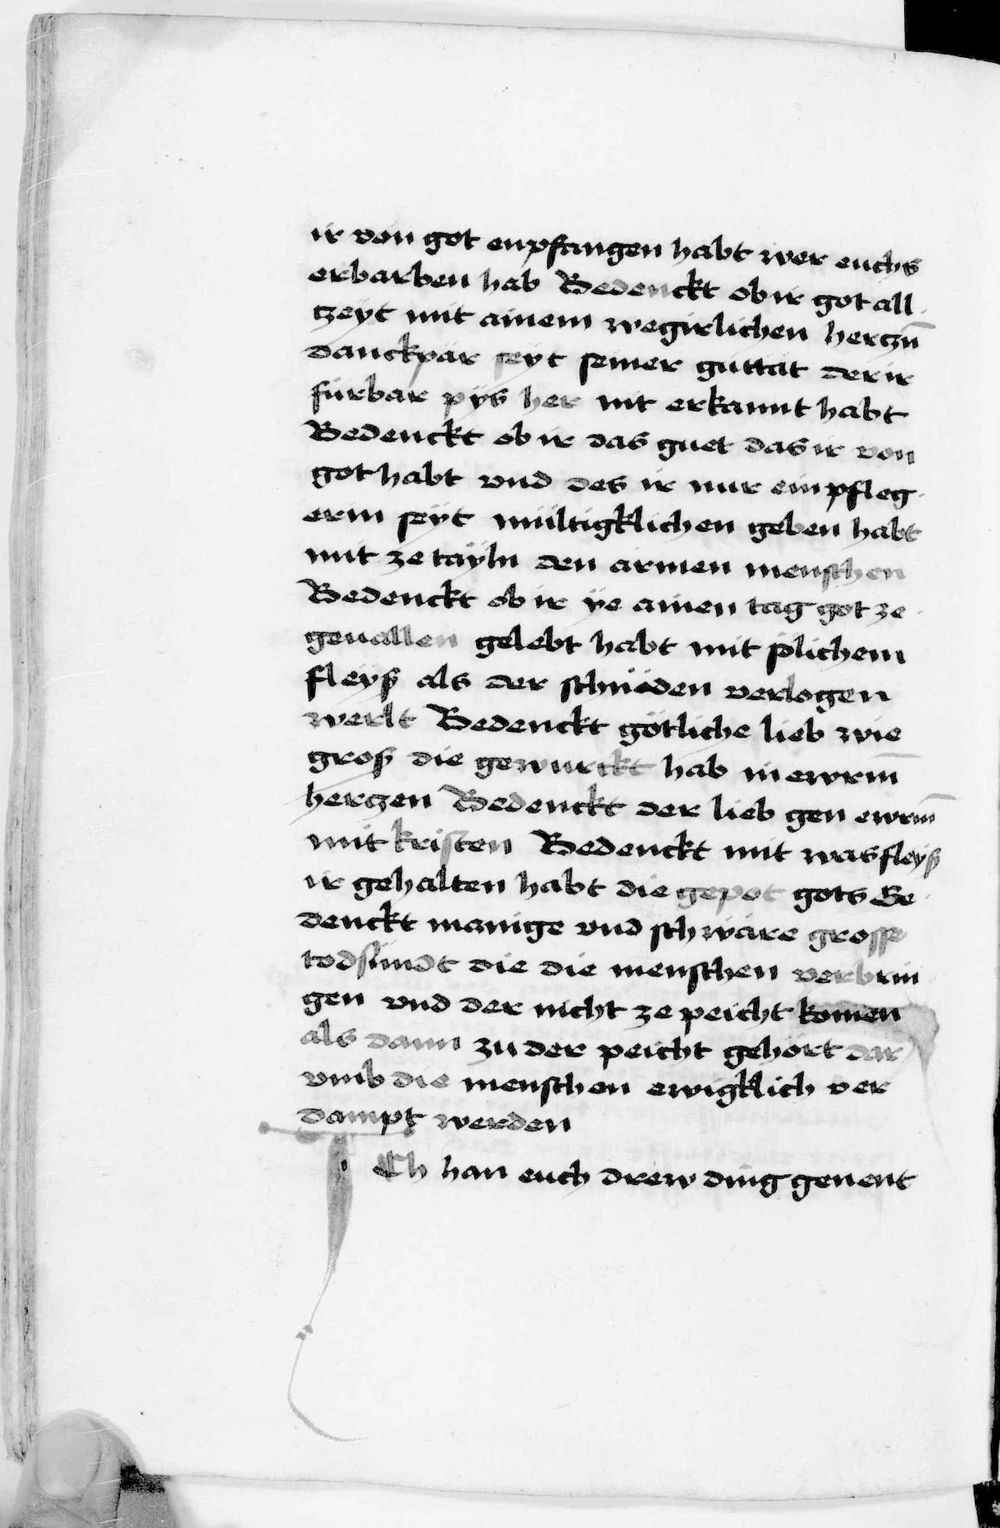 ir von got enpfangen habt wer euchs
erbarben hab Bedenckt ob ir got all
czeyt mit ainem wegirlichen herczn̄
danckpär seyt seiner guttat der ir
fürbar pys her nit erkannt habt
Bedenckt ob ir das guet das ir von
got habt vnd des ir nur ein pfleg
erin seyt mültigklichen geben habt
mit ze tayln den armen menschen
Bedenckt ob ir ye ainen tag got ze
geuallen gelebt habt mit sölichem
fleyß als der schnöden verlogen
werlt Bedenckt götliche lieb wie
groß die gewurckt hab in ewrm̄
herczen Bedenckt der lieb gen ewrm̄
mit kristen Bedenckt mit was fleyß
ir gehalten habt die gepot gots Be
denckt manige vnd schwäre grosse
todsündt die die menschen verbrin
gen vnd der nicht ze peicht komen
als dann zu der peicht gehört dar
vmb die menschen ewigklich ver
dampt werden
ICh han euch drew ding genent